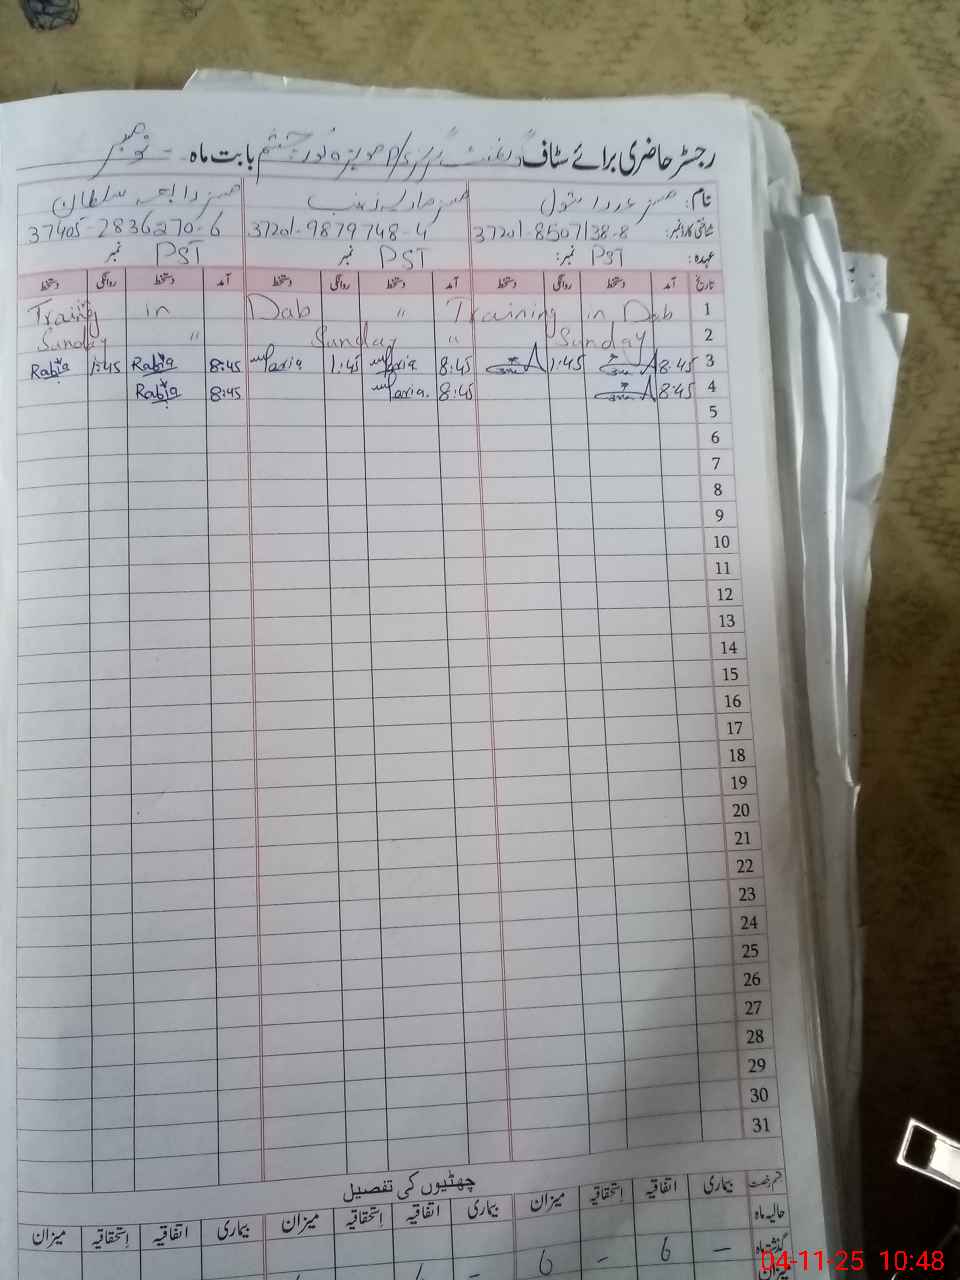 رجسٹر حاضری برائے سٹاف گورنمنٹ گرلز P/S موہڑہ نور چشم بابت ماہ - نومبر
نام: مسز عذرا بتول مسز ماریہ زینب مسز رابعہ سلطان
شناختی کارڈ نمبر: 37201-8507138-8 37201-9879748-4 37405-2836270-6
عہدہ: PST نمبر: PST نمبر PST نمبر
تاریخ آمد دستخط روانگی دستخط آمد دستخط روانگی دستخط آمد دستخط روانگی دستخط
1 Traing in Dab " Training in Dab
2 Sunday " Sunday " Sunday
3 8:45 1:45 8:45 Maria 1:45 Maria 8:45 Rabia 1:45 Rabia
4 8:45 8:45 Maria. 8:45 Rabia
5
6
7
8
9
10
11
12
13
14
15
16
17
18
19
20
21
22
23
24
25
26
27
28
29
30
31
چھٹیوں کی تفصیل
قسم رخصت بیماری اتفاقیہ استحقاقیہ میزان بیماری اتفاقیہ استحقاقیہ میزان بیماری اتفاقیہ استحقاقیہ میزان
حالیہ ماہ
گذشتہ ماہ - 6 - 6 -
میزان
04-11-25 10:48